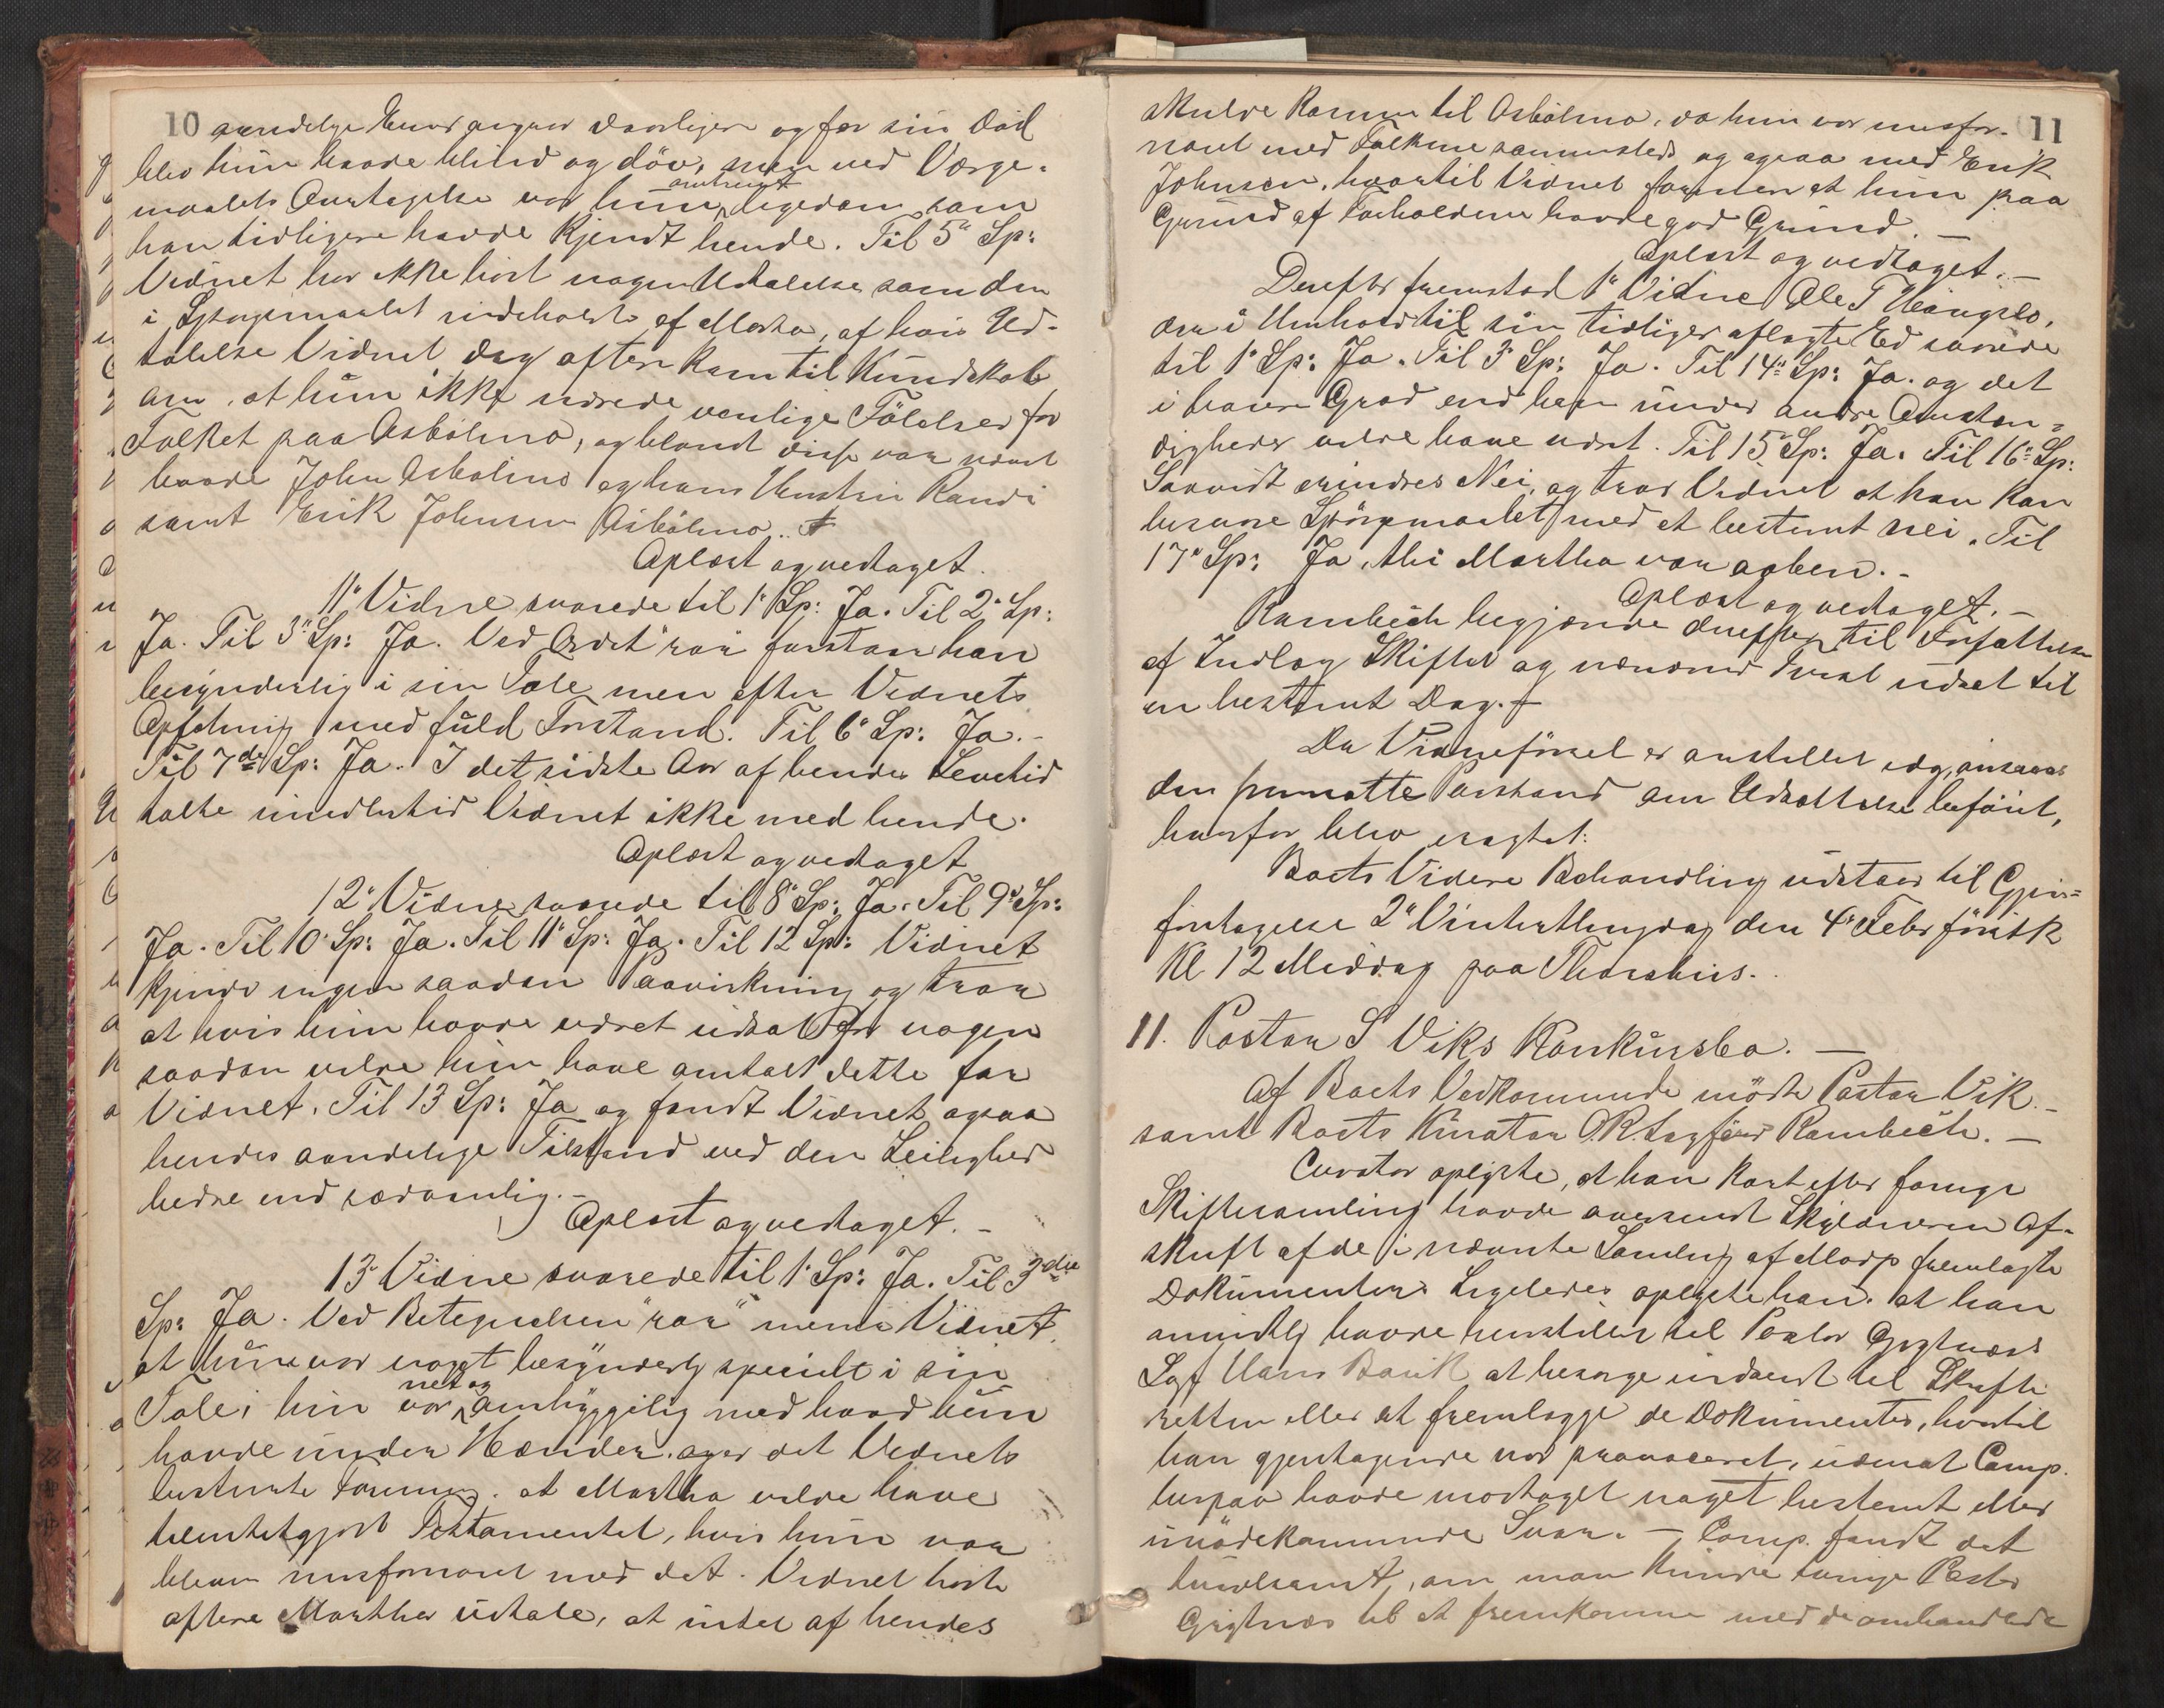 10
aandelige Evner angaar daarligere og før sin Död
blev hun baade blind og döv, men ved Værge-
maalets Antagelse var hun omtrent ligedan som
han tidligere havde kjendt hende. Til 5" Sp:
Vidnet har ikke hört nogen Udtalelse som den
i Spörgsmaalet indeholdte af Martha, af hvis Ud-
talelse Vidnet dog oftere kom til Kundskab
om, at hun ikke nærede venlige Fölelser for
Folket paa Asbölmo, og blandt disse var nævnt
baade John Asbölmo og hans Hustru Randi
samt Erik Johnsen Asbölmo.
Oplæst og vedtaget.
11" Vidne svarede til 1" Sp: Ja. Til 2" Sp:
Ja. Til 3" Sp: Ja. Ved Ordet "rar" forstaar han
besynderlig i sin Tale, men efter Vidnets
Opfatning med fuld Forstand. Til 6" Sp: Ja.-
Til 7de Sp: Ja. I det sidste Aar af hendes Levetid
talte imidlertid Vidnet ikke med hende.
Oplæst og vedtaget
12" Vidne svarede til 8" Sp: Ja. Til 9" Sp:
Ja. Til 10" Sp: Ja. Til 11" Sp: Ja. Til 12 Sp: Vidnet
kjender ingen saadan Paavirkning og tror
at hvis hun havde været udsat for nogen
saadan vilde hun have omtalt dette for
Vidnet. Til 13 Sp: Ja og fandt Vidnet ogsaa
hendes aandelige Tilstand ved den Leilighed
bedre end sædvanlig.-
Oplæst og vedtaget.-
13" Vidne svarede til 1" Sp: Ja. Til 3die
Sp: Ja. Ved Betegnelsen "rar" mener Vidnet,
at hun var noget besynderlig specielt i sin
Tale; hun var net og omhyggelig med hvad hun
havde under Hænder, og er det Vidnets
bestemte Formening, at Martha vilde have
tilintetgjort Testamentet, hvis hun var
bleven misfornøiet med det. Vidnet hörte
oftere Martha udtale, at intet af hendes
11
skulde komme til Asbölmo, da hun var misfor-
nøiet med Folkene sammesteds og ogsaa med Erik
Johnsen, hvortil Vidnet formener at hun paa
Grund af Forholdene havde god Grund.-
Oplæst og vedtaget.-
Derefter fremstod 1" Vidne Ole T
der i Henhold til sin tidligere aflagte Ed svarede
til 1" Sp: Ja. Til 3" Sp: Ja. Til 14" Sp: Ja. og det
i höiere Grad end han under andre Omstæn-
digheder vilde have været. Til 15" Sp: Ja. Til 16" Sp:
Saavidt erindres Nei, og tror Vidnet at han kan
besvare Spörgsmaalet med et bestemt nei. Til
17" Sp: Ja, thi Martha var aaben.-
Oplæst og vedtaget.-
Rambech begjærede derefter til Forfattelse
af Indlæg Skiftet og nærværende Tvist udsat til
en bestemt Dag.-
Da Vidneførsel er anstillet idag, ansaaes
den fremsatte Paastand om Udsættelse beföiet,
hvorfor blev eragtet:
Boets Videre Behandling udstaar til Gjen-
foretagelse 2" Vinterthingdag den 4" Febr förstk
Kl 12 Middag paa Thorshus.
11. Pastor S Viks Konkursbo.-
Af Boets Vedkommende mödte Pastor Vik.-
samt Boets Kurator O.R.Sagförer Rambech.-
Curator oplyste, at han kort efter forrige
Skiftesamling havde oversendt Skyldneren Af-
skrift af de i nævnte Samling af Morp fremlagte
Dokumenter. Ligeledes oplyste han. at han
mundtlig havde henstillet til Pastor Grytnæs
Sagf Hans at besörge indsendt til Skifte-
retten eller at fremlægge de Dokumenter, hvortil
han gjentagende var provoceret, uden at Comp.
herpaa havde modtaget noget bestemt eller
imödekommende Svar.- Comp. fandt det
tvivlsomt, om man kunde tvinge Pastor
Grytnæs til at fremkomme med de omhandlede